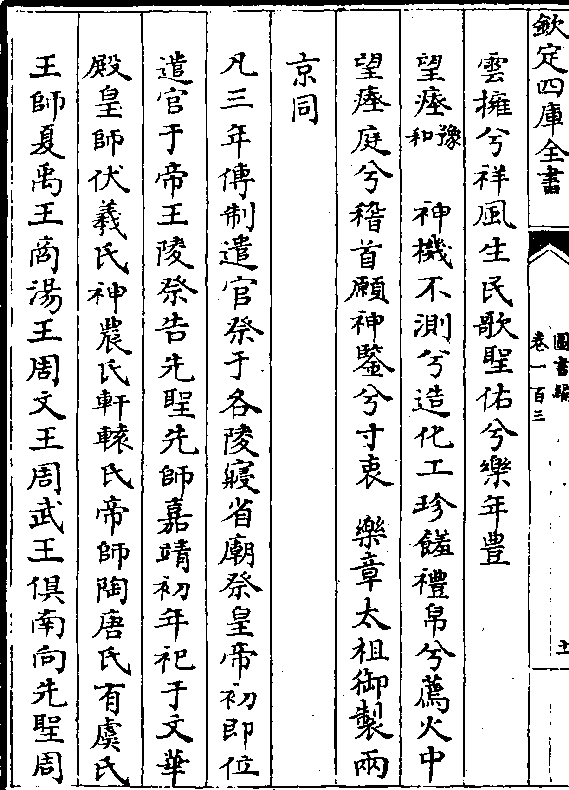 欽定四庫全書
圖書編
卷一百三
雲擁兮祥風生民歌聖佑兮樂年豊
望瘞豫和　神機不測兮造化工珍饈禮帛兮薦火中
望瘞庭兮稽首願神鑒兮寸衷　樂章太祖御製兩
京同
凡三年傳制遣官祭于各陵寢省廟祭皇帝初即位
遣官于帝王陵祭告先聖先師嘉靖初年祀于文華
殿皇師伏羲氏神農氏軒轅氏帝師陶唐氏有虞氏
王師夏禹王商湯王周文王周武王俱南向先聖周